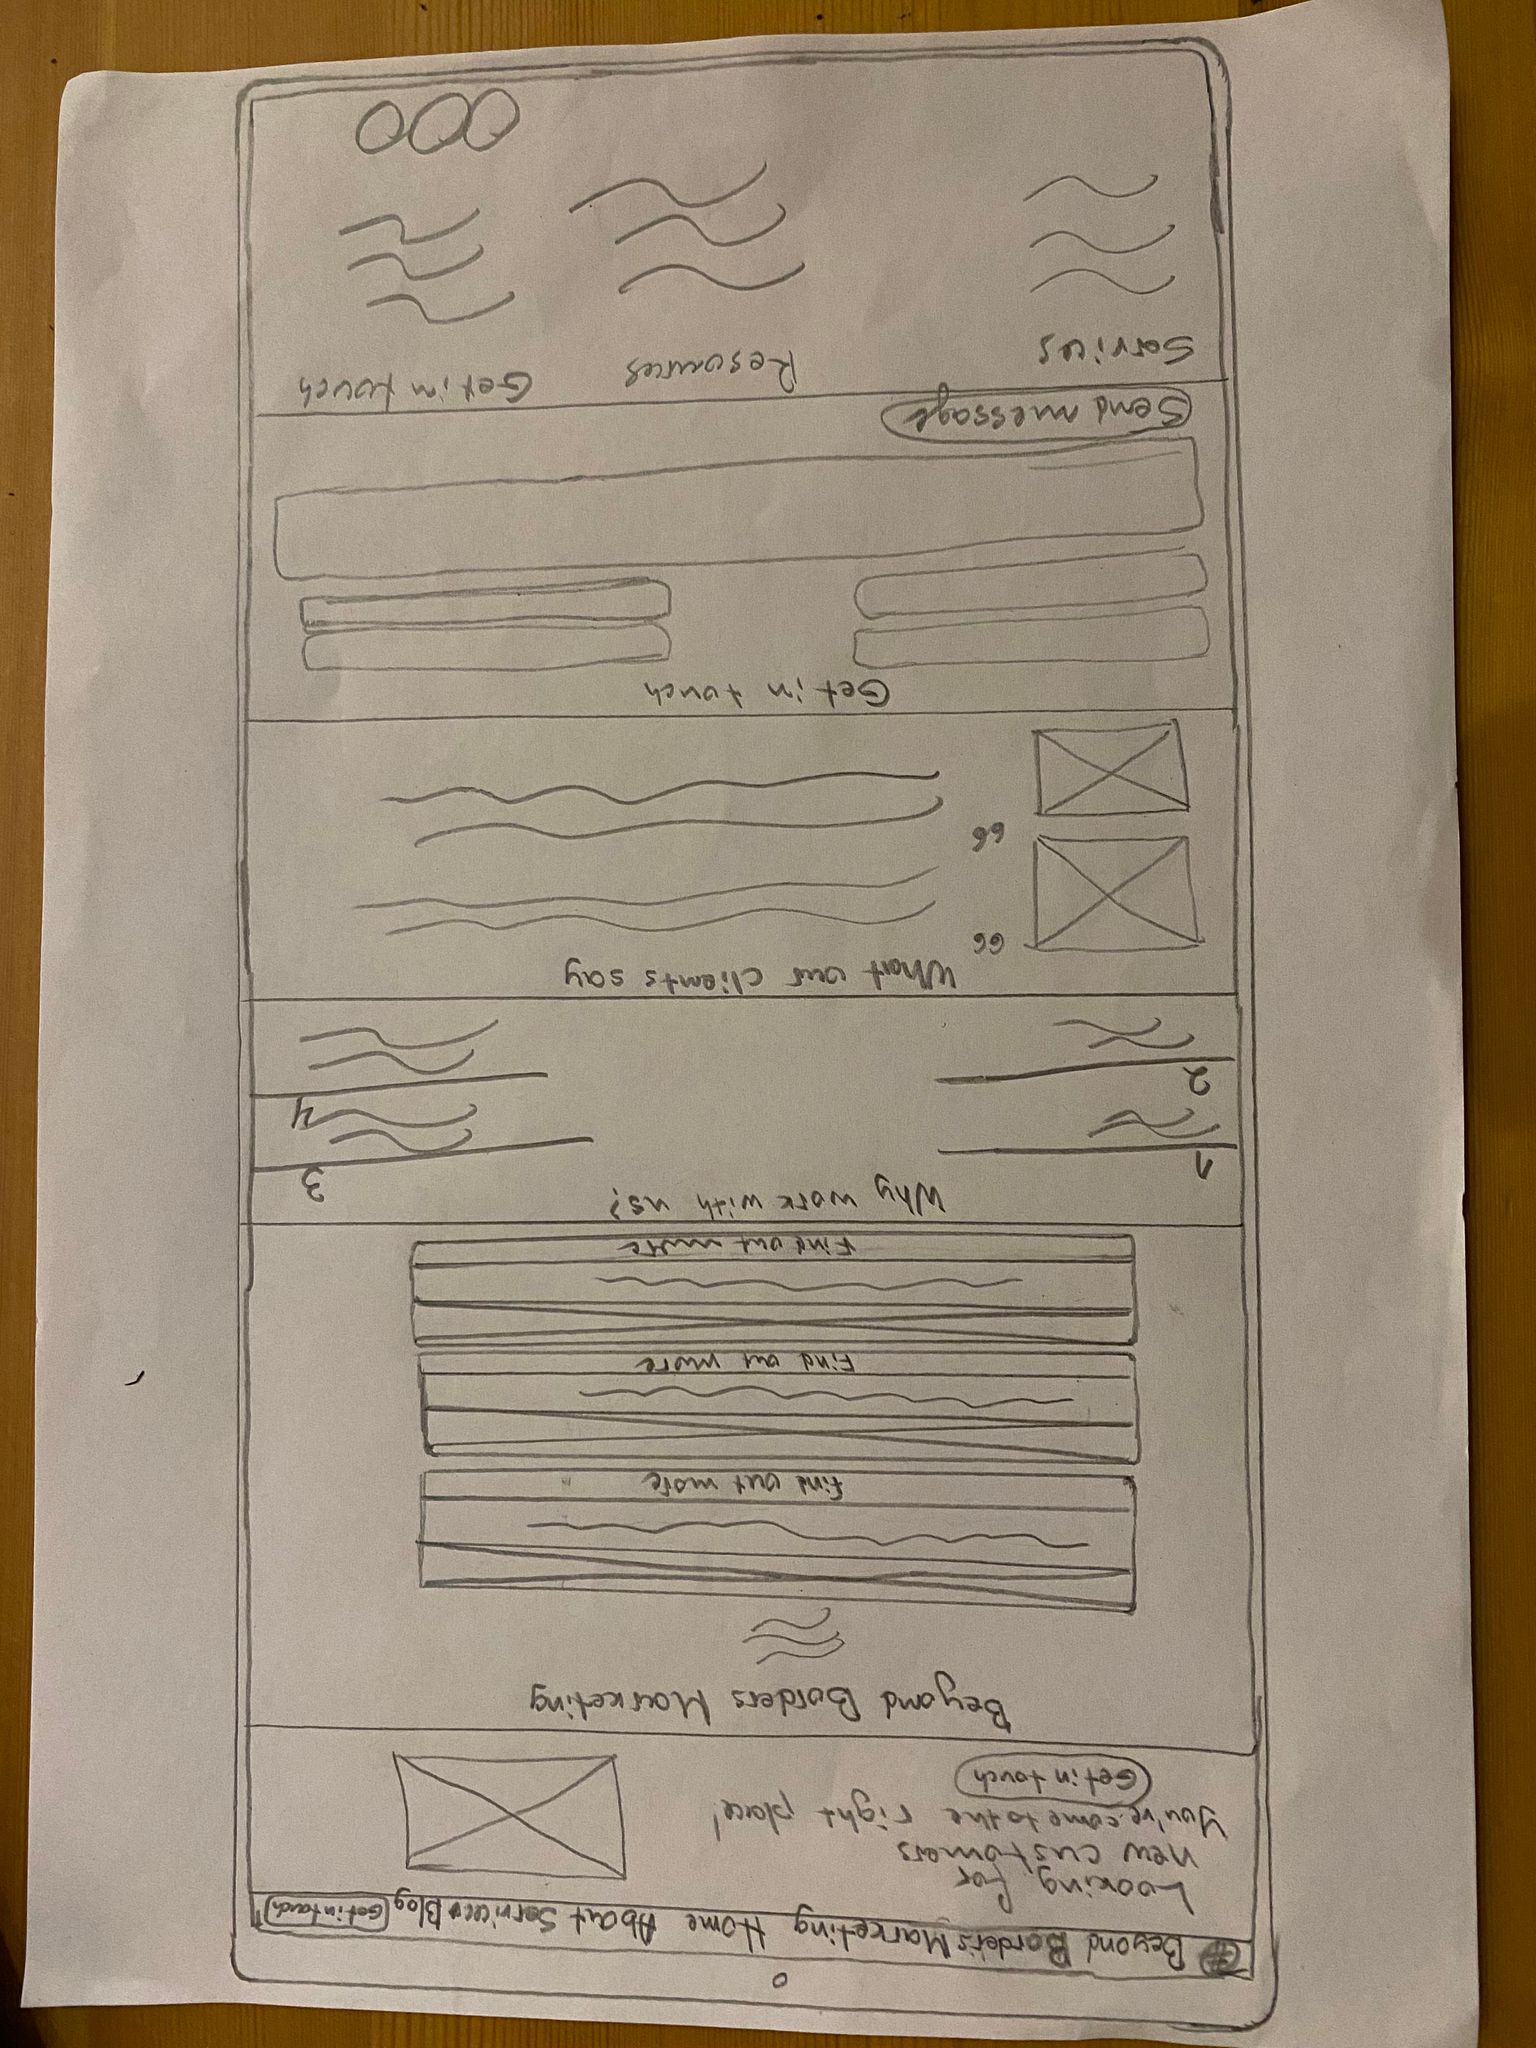 # Beyond Borders Marketing Home About Services Blog Get in touch
Looking for
new customers
You've come to the right place!
Get in touch
Beyond Borders Marketing
Find out more
Find out more
Find out more
Why work with us?
1
3
2
4
What our clients say
66
66
Get in touch
Send message
Services
Resources
Get in touch